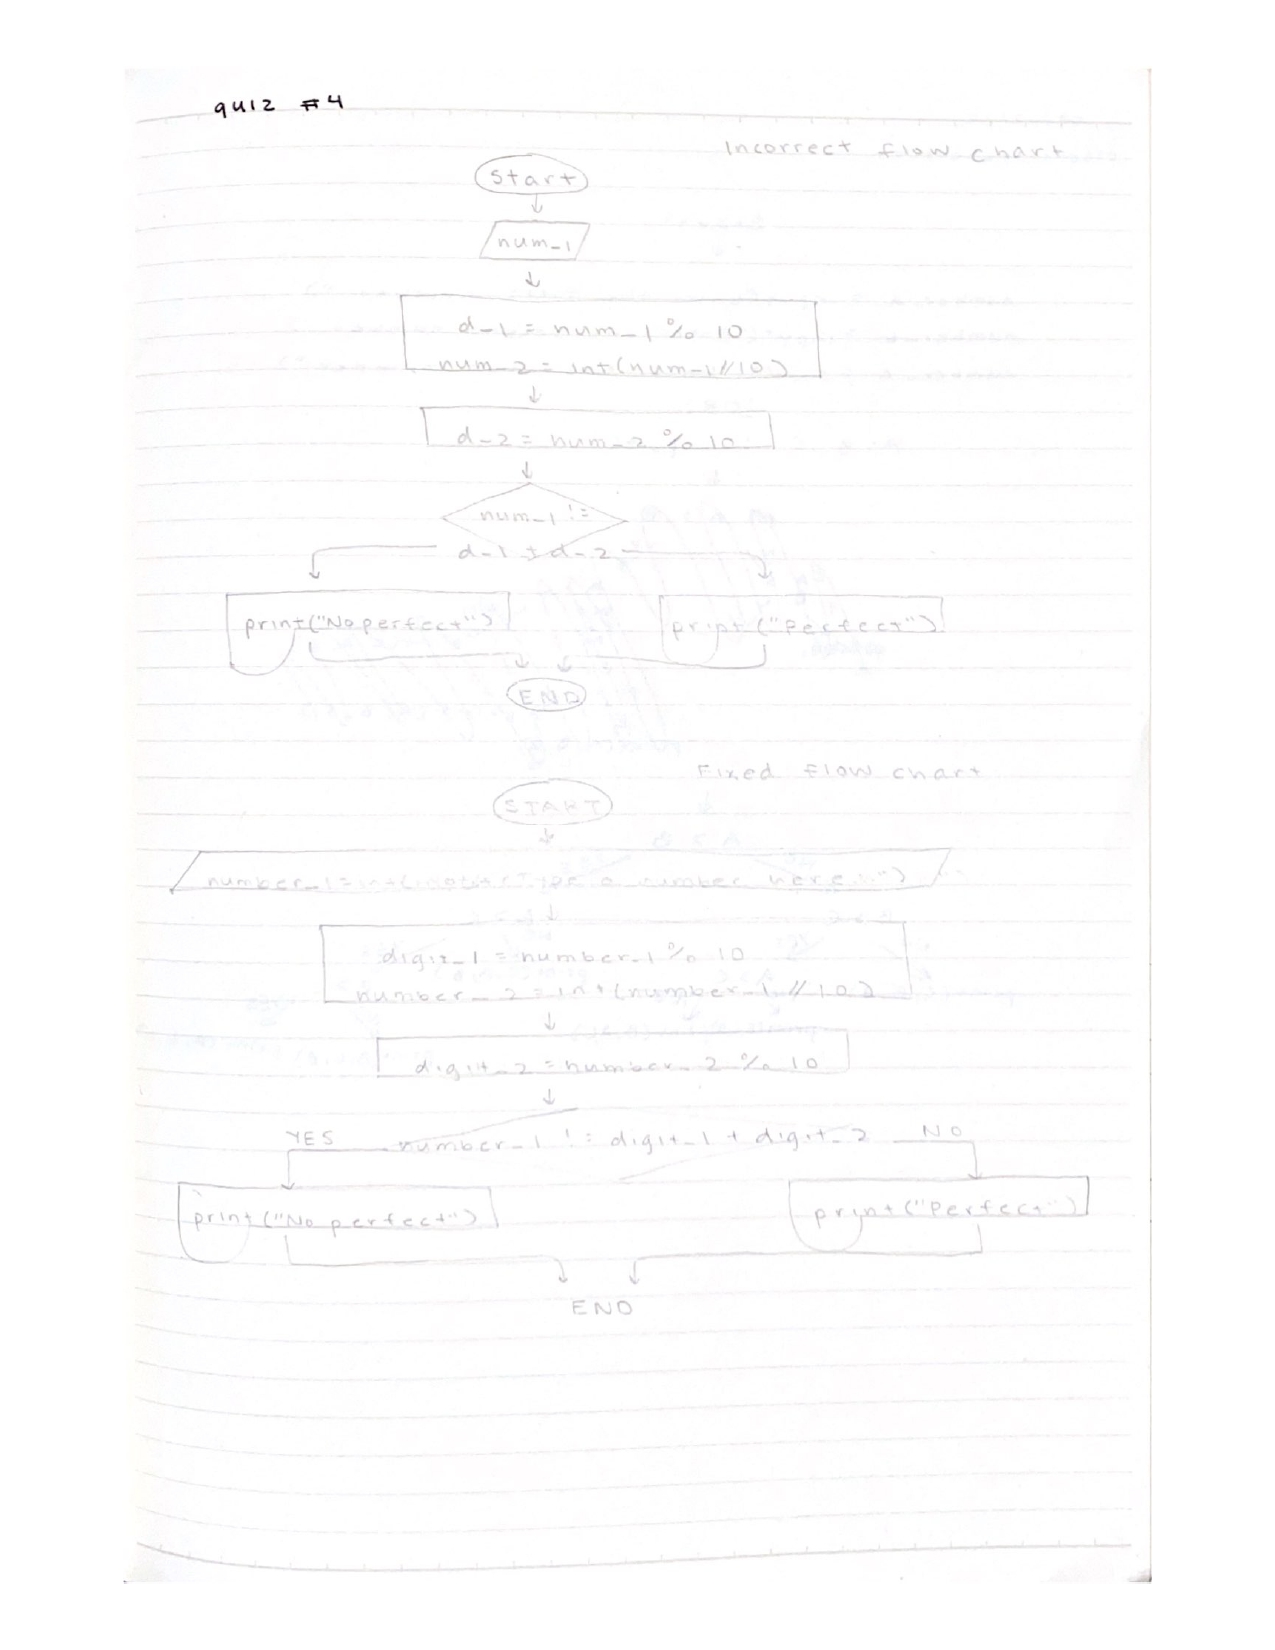 quiz #4
Incorrect flow chart
Start
num_1
d_1 = num_1 % 10
num_2 = int(num_1//10)
d_2 = num_2 % 10
num_1 !=
d_1 + d_2
print("No perfect")
print("Perfect")
END
Fixed flow chart
START
number_1=int(input("Type a number here: "))
digit_1 = number_1 % 10
number_2 = int(number_1 // 10)
digit_2 = number_2 % 10
YES number_1 != digit_1 + digit_2 NO
print("No perfect")
print("Perfect")
END